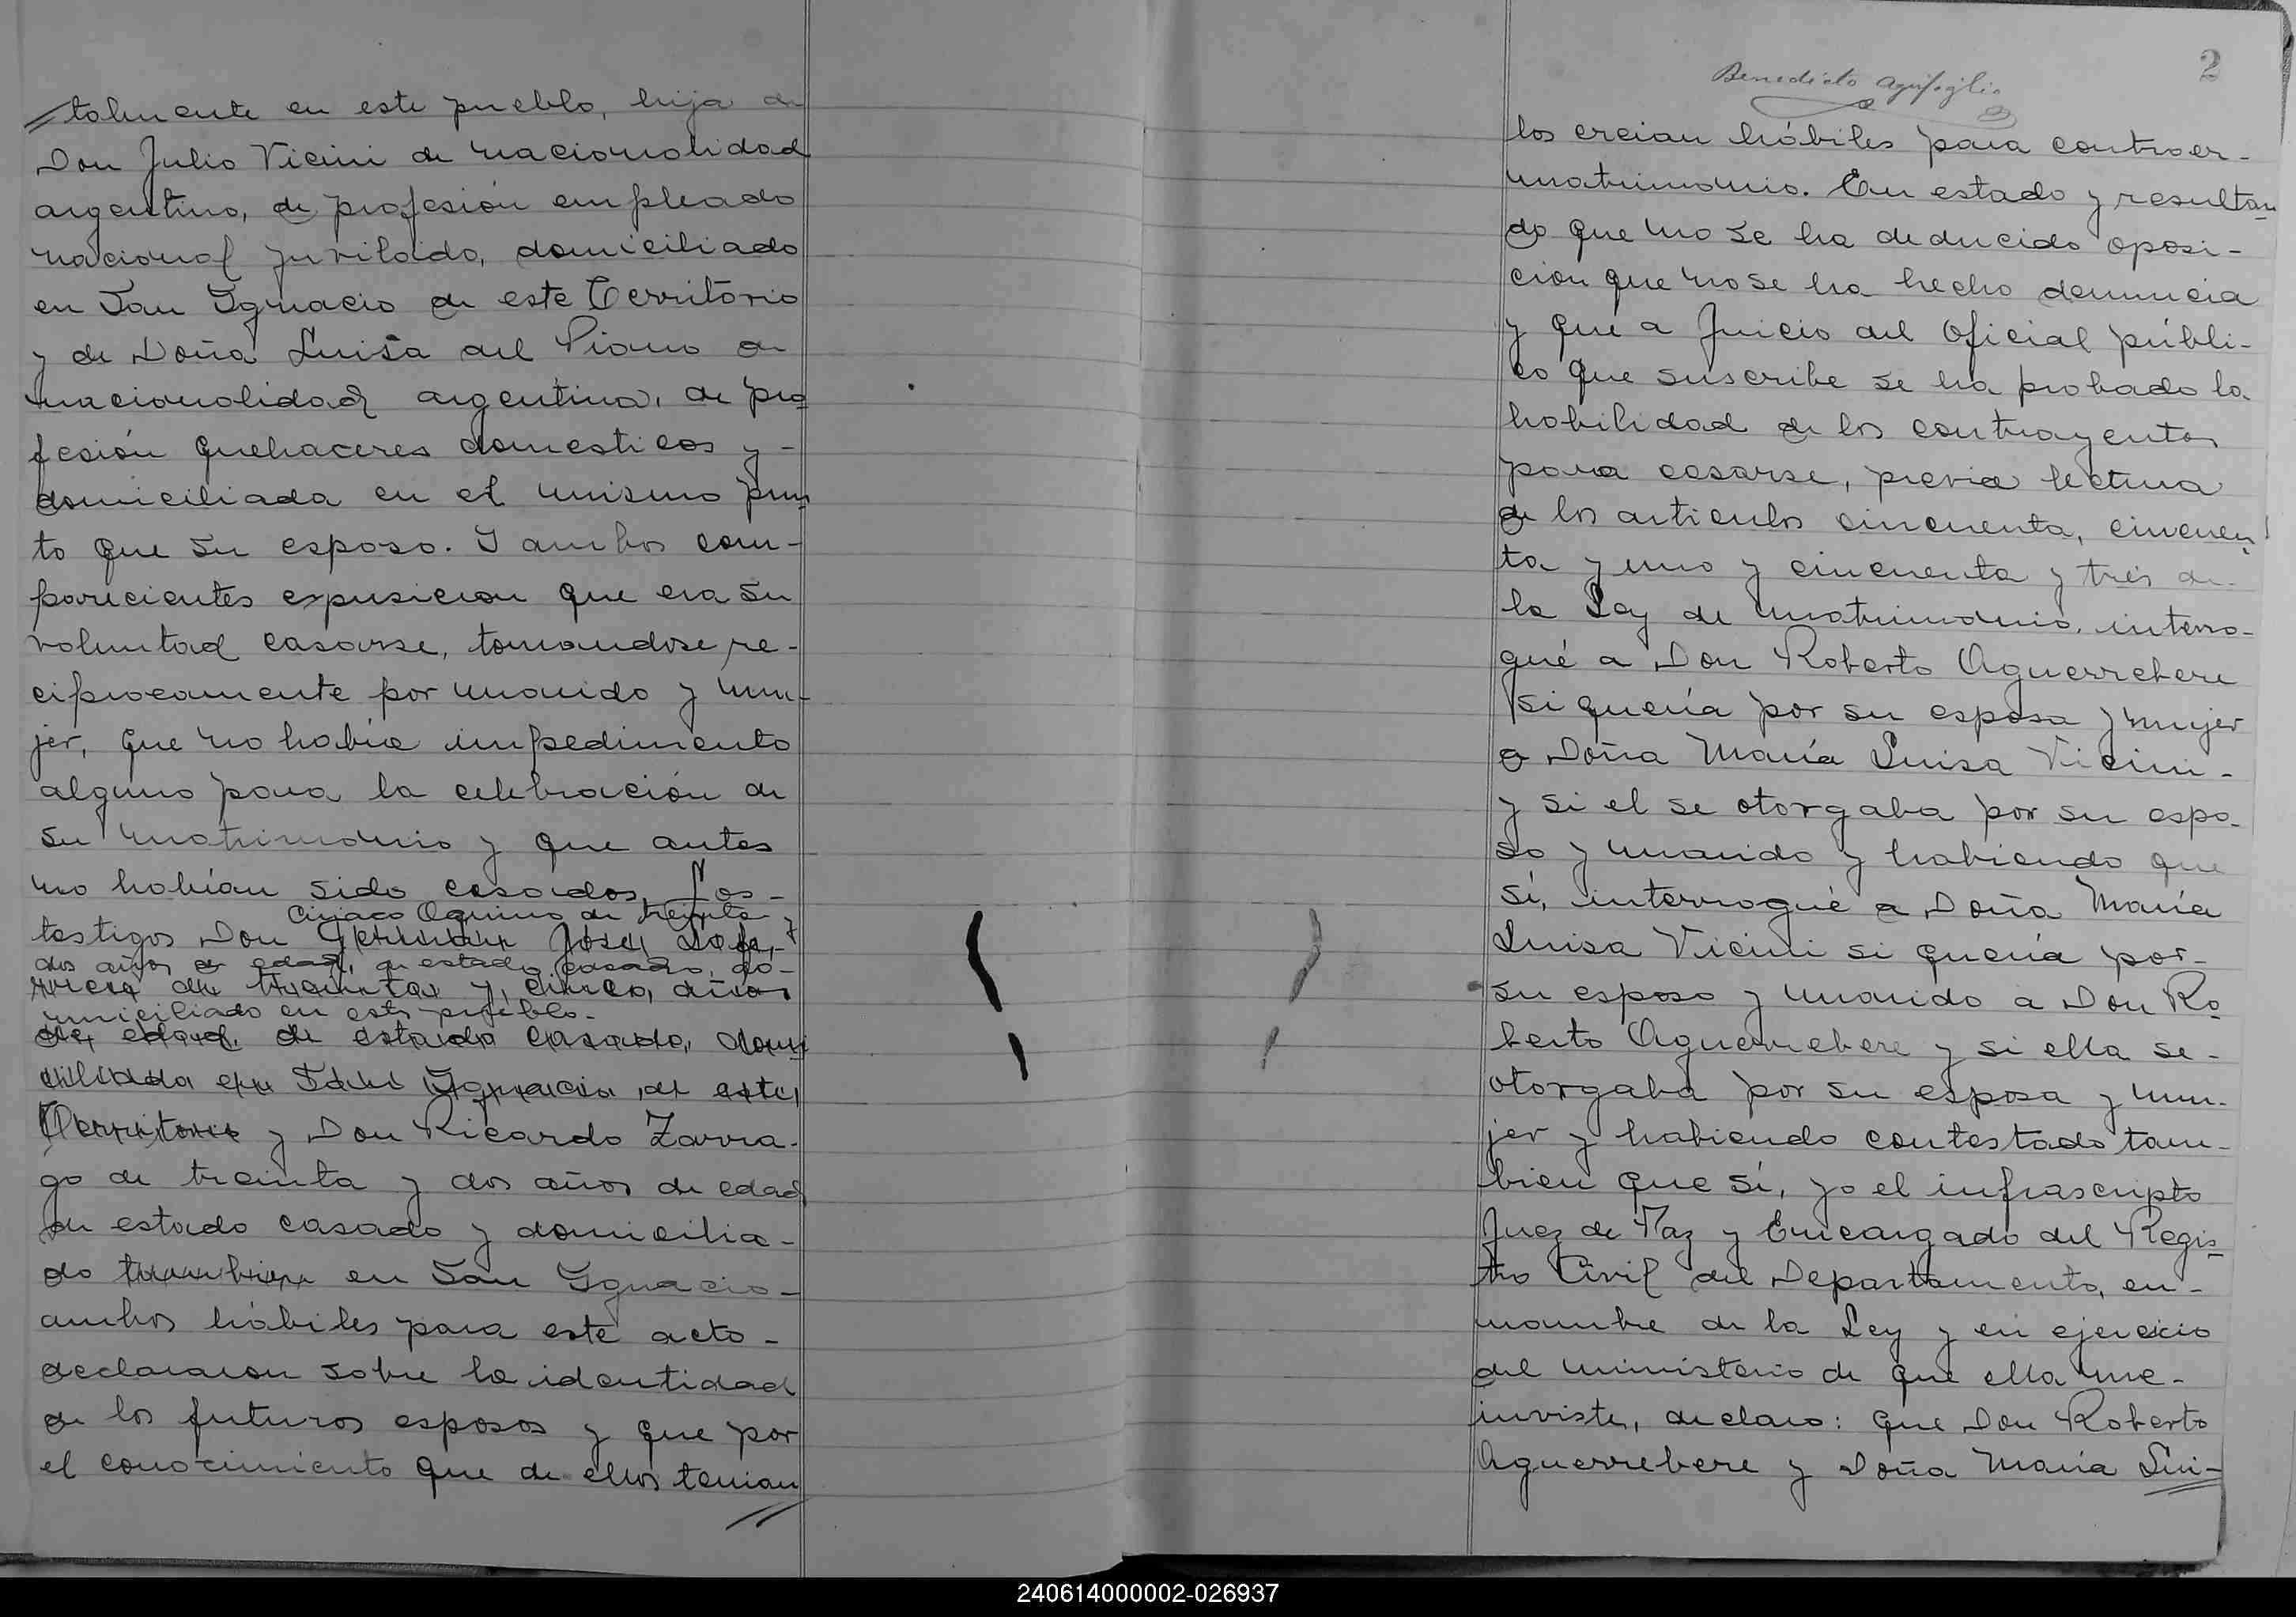 talmente en este pueblo, hija de
Don Julio Vicini de nacionalidad
argentino, de profesión empleado
nacional juvilado, domiciliado
en San Ygnacio de este Territorio
y de Doña Luisa del Piano de
nacionalidad argentina, de pro
fesión quehaceres domesticos y -
domiciliada en el mismo pun
to que su esposo. Y ambos com-
parecientes expusieron que era su
voluntad casarse, tomandose re-
ciprocamente por marido y mu-
jer, que no había impedimento
alguno para la celebración de
su matrimonio y que antes
no habían sido casados. Los -
Ciriaco Aquino de treinta y
testigos Don José
dos años de edad, de estado casado, do-
de treinta y cinco años
miciliado en este pueblo.-
de edad, de estado casado, domi
ciliado en San Ygnacio de este
Territorio y Don Ricardo Zarra-
go de treinta y dos años de edad
de estado casado y domicilia-
do tambien en San Ygnacio -
ambos hábiles para este acto -
declararon sobre la identidad
de los futuros esposos y que por
el conocimiento que de ellos tenian
2
Benedicto
los creian hábiles para contraer -
matrimonio. En estado y resultan
do que no se ha deducido oposi-
cion que no se ha hecho denuncia
y que a Juicio del Oficial públi-
co que suscribe se ha probado la
habilidad de los contrayentes
para casarse, previa lectura
de los articulos cincuenta, cincuen
ta y uno y cincuenta y tres de -
la Ley de matrimonio, interro-
gué a Don Roberto Aguerrebere
si quería por su esposa y mujer
a Doña María Luisa Vicini -
y si el se otorgaba por su espo-
so y marido y habiendo que
sí, interrogué a Doña María
Luisa Vicini si quería por -
su esposo y marido a Don Ro
berto Aguerrebere y si ella se -
otorgaba por su esposa y mu-
jer y habiendo contestado tam-
bien que sí, yo el infrascripto
Juez de Paz y Encargado del Regis
tro Civil del Departamento, en -
nombre de la Ley y en ejercicio
del ministerio de que ella me -
inviste, declaro: que Don Roberto
Aguerrebere y Doña María Lui-
240614000002-026937